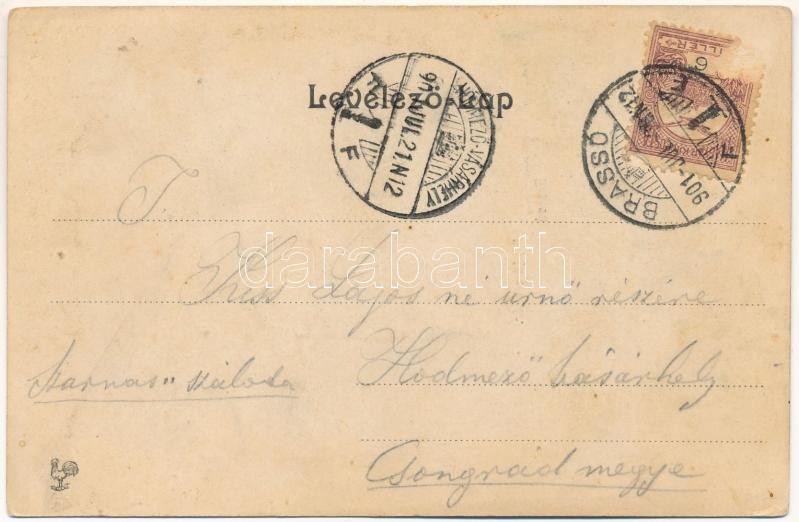 Levelező-Lap
HÓDMEZŐ-VÁSÁRHELY
901 JUL. 21. N12
1 F
BRASSÓ
901
F
FILLÉR
6
darabanth
T.
Kiss Lajos né urnő részére
"Szarvas" szálloda
Hódmező vásárhely
Csongrád megye